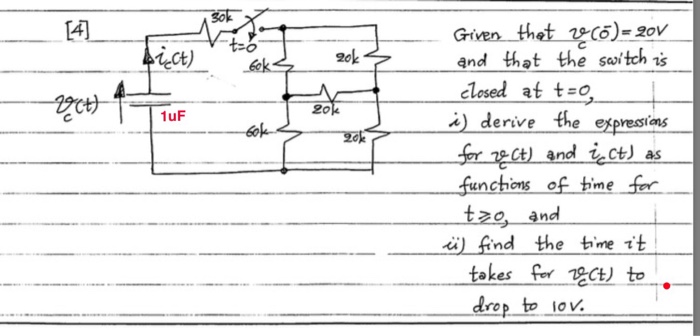 [4]
30k
t=0
i_c(t)
60k
20k
v_c(t)
1uF
20k
60k
20k
Given that v_c(0̄) = 20V
and that the switch is
closed at t=0,
i) derive the expressions
for v_c(t) and i_c(t) as
functions of time for
t≥0, and
ii) find the time it
takes for v_c(t) to
drop to 10V.